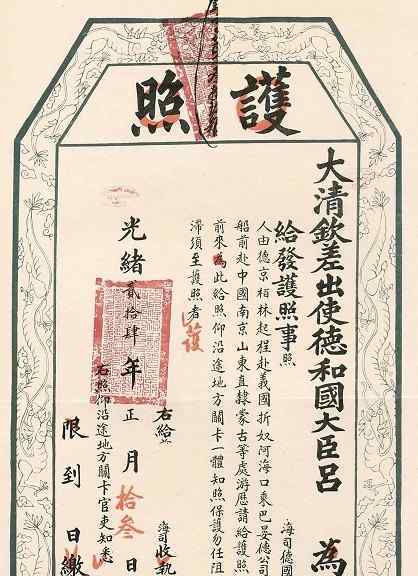 護照
大清欽差出使德和國大臣呂 為
給發護照事照 海司德國
人由德京柏林起程赴義國折奴阿海口乘巴晏德公司
船前赴中國南京山東直隸蒙古等處游歷請給護照
前來為此給照仰沿途地方關卡一體知照保護勿任阻
滯須至護照者 護
右給 海司收執
光緒貳拾肆年正月拾叁日
右照仰沿途地方關卡官吏知悉
限到 日繳